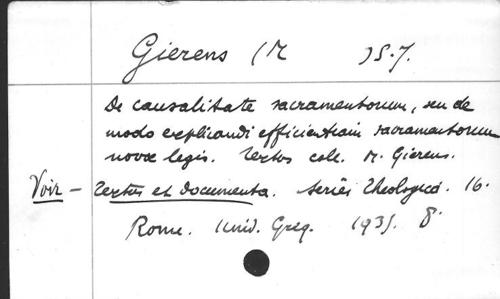 Gierens (M
De causalitate sacramentorum, seu de
modo explicandi efficientiam sacramentorum
novae legis. Textos coll. M. Gierens.
Voir - Textus et Documenta. Series Theologica. 16.
Rome. Univ. Greg. 1935. 8°